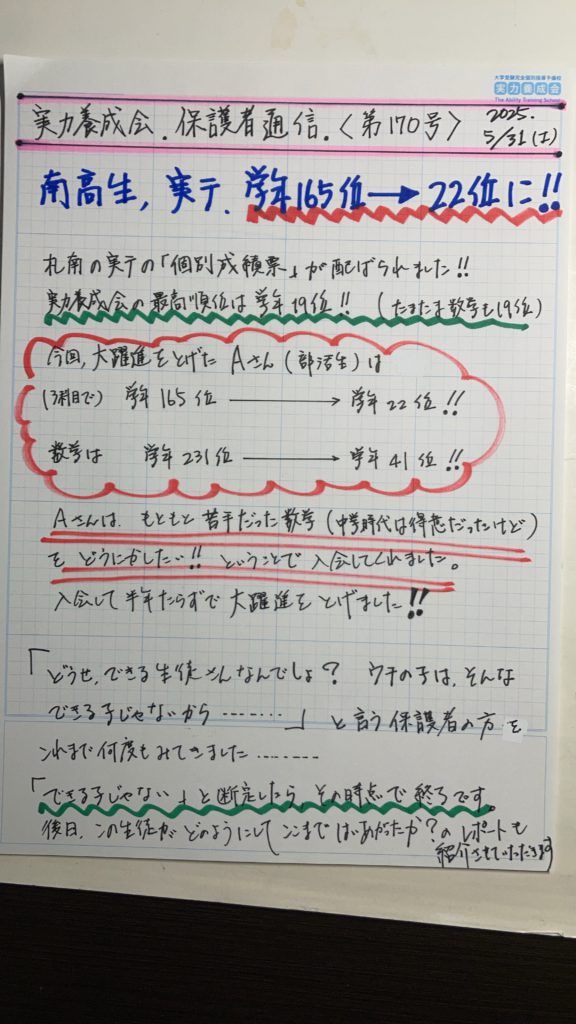 大学受験完全個別指導予備校
実力養成会
The Ability Training School
実力養成会.保護者通信.〈第170号〉
2025.
5/31(土)
南高生,実テ.学年165位→22位に!!
札南の実テの「個別成績票」が配ばられました!!
実力養成会の最高順位は学年19位!!(たまたま数学も19位)
今回,大躍進をとげたAさん(部活生)は
(3科目で) 学年165位→学年22位!!
数学は 学年231位→学年41位!!
Aさんは、もともと苦手だった数学(中学時代は得意だったけど)
をどうにかしたい!!ということで入会してくれました。
入会して半年たらずで大躍進をとげました!!
「どうせ,できる生徒さんなんでしょ? ウチの子は,そんな
できる子じゃないから………」と言う保護者の方を
これまで何度もみてきました………
「できる子じゃない」と断定したら,その時点で終了です。
後日,この生徒がどのようにしてここまではいあがったか?のレポートも
紹介させていただきます